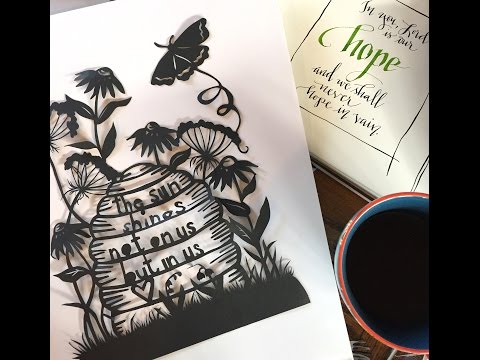 the sun
shines
not on us
but in us
In you, Lord
is our
hope
and we shall
never
hope in vain.